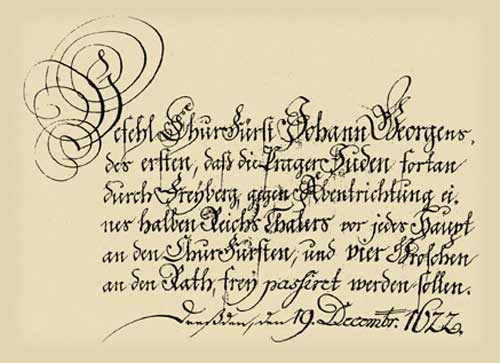 Befehl ChurFürst Johann Georgens,
des ersten, daß die Prager Juden fortan
durch Freyberg, gegen Abentrichtung ei,
nes halben Reichs Thalers vor jedes Haupt
an den ChurFürsten, und vier Groschen
an den Rath, frey passiret werden sollen.
Dreßden, den 19. Decembr. 1622.